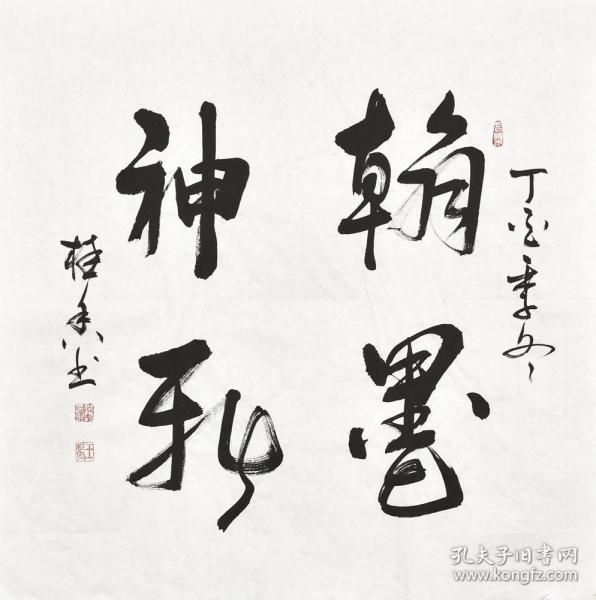 丁酉季冬
翰墨
神
桂香书
孔夫子旧书网
www.kongfz.com